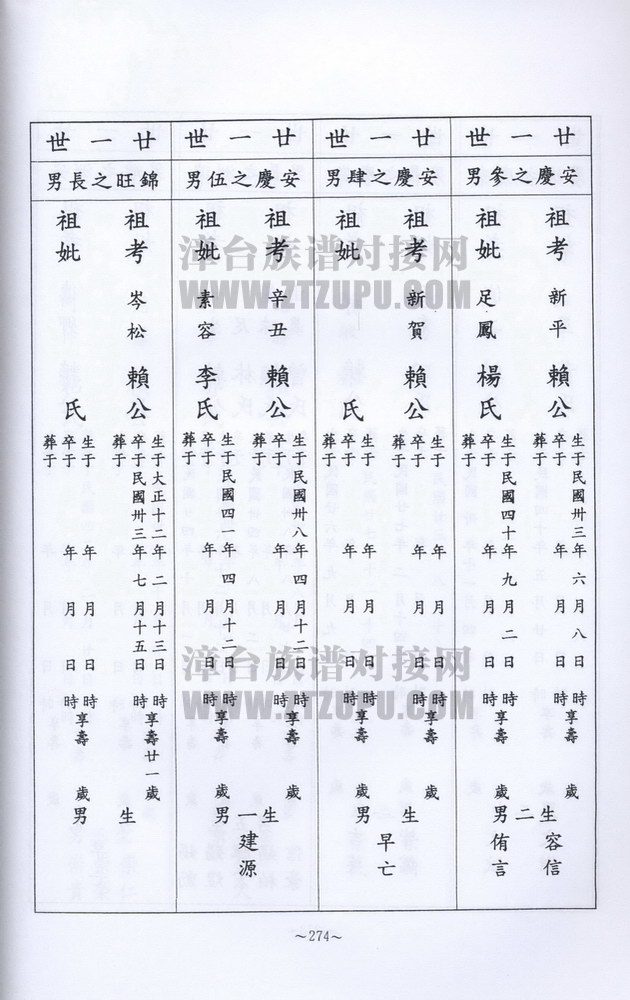 廿一世
安慶之參男
祖考 新平 賴公
生于民國卅三年六月八日時
卒于 年 月 日時享壽 歲
葬于
祖妣 足鳳 楊氏
生于民國四十年九月二日時
卒于 年 月 日時享壽 歲
葬于
生二男
容信
侑言
廿一世
安慶之肆男
祖考 新賀 賴公
生于 年 月 日時
卒于 年 月 日時享壽 歲
葬于
祖妣 氏
生于 年 月 日時
卒于 年 月 日時享壽 歲
葬于
生 男
早亡
廿一世
安慶之伍男
祖考 辛丑 賴公
生于民國卅八年四月十二日時
卒于 年 月 日時享壽 歲
葬于
祖妣 素容 李氏
生于民國四一年四月十二日時
卒于 年 月 日時享壽 歲
葬于
生一男
建源
廿一世
錦旺之長男
祖考 岑松 賴公
生于大正十二年二月十三日時
卒于民國卅三年七月十五日時享壽廿一歲
葬于
祖妣 氏
生于 年 月 日時
卒于 年 月 日時享壽 歲
葬于
生 男
~274~
漳台族谱对接网
WWW.ZTZUPU.COM
漳台族谱对接网
WWW.ZTZUPU.COM